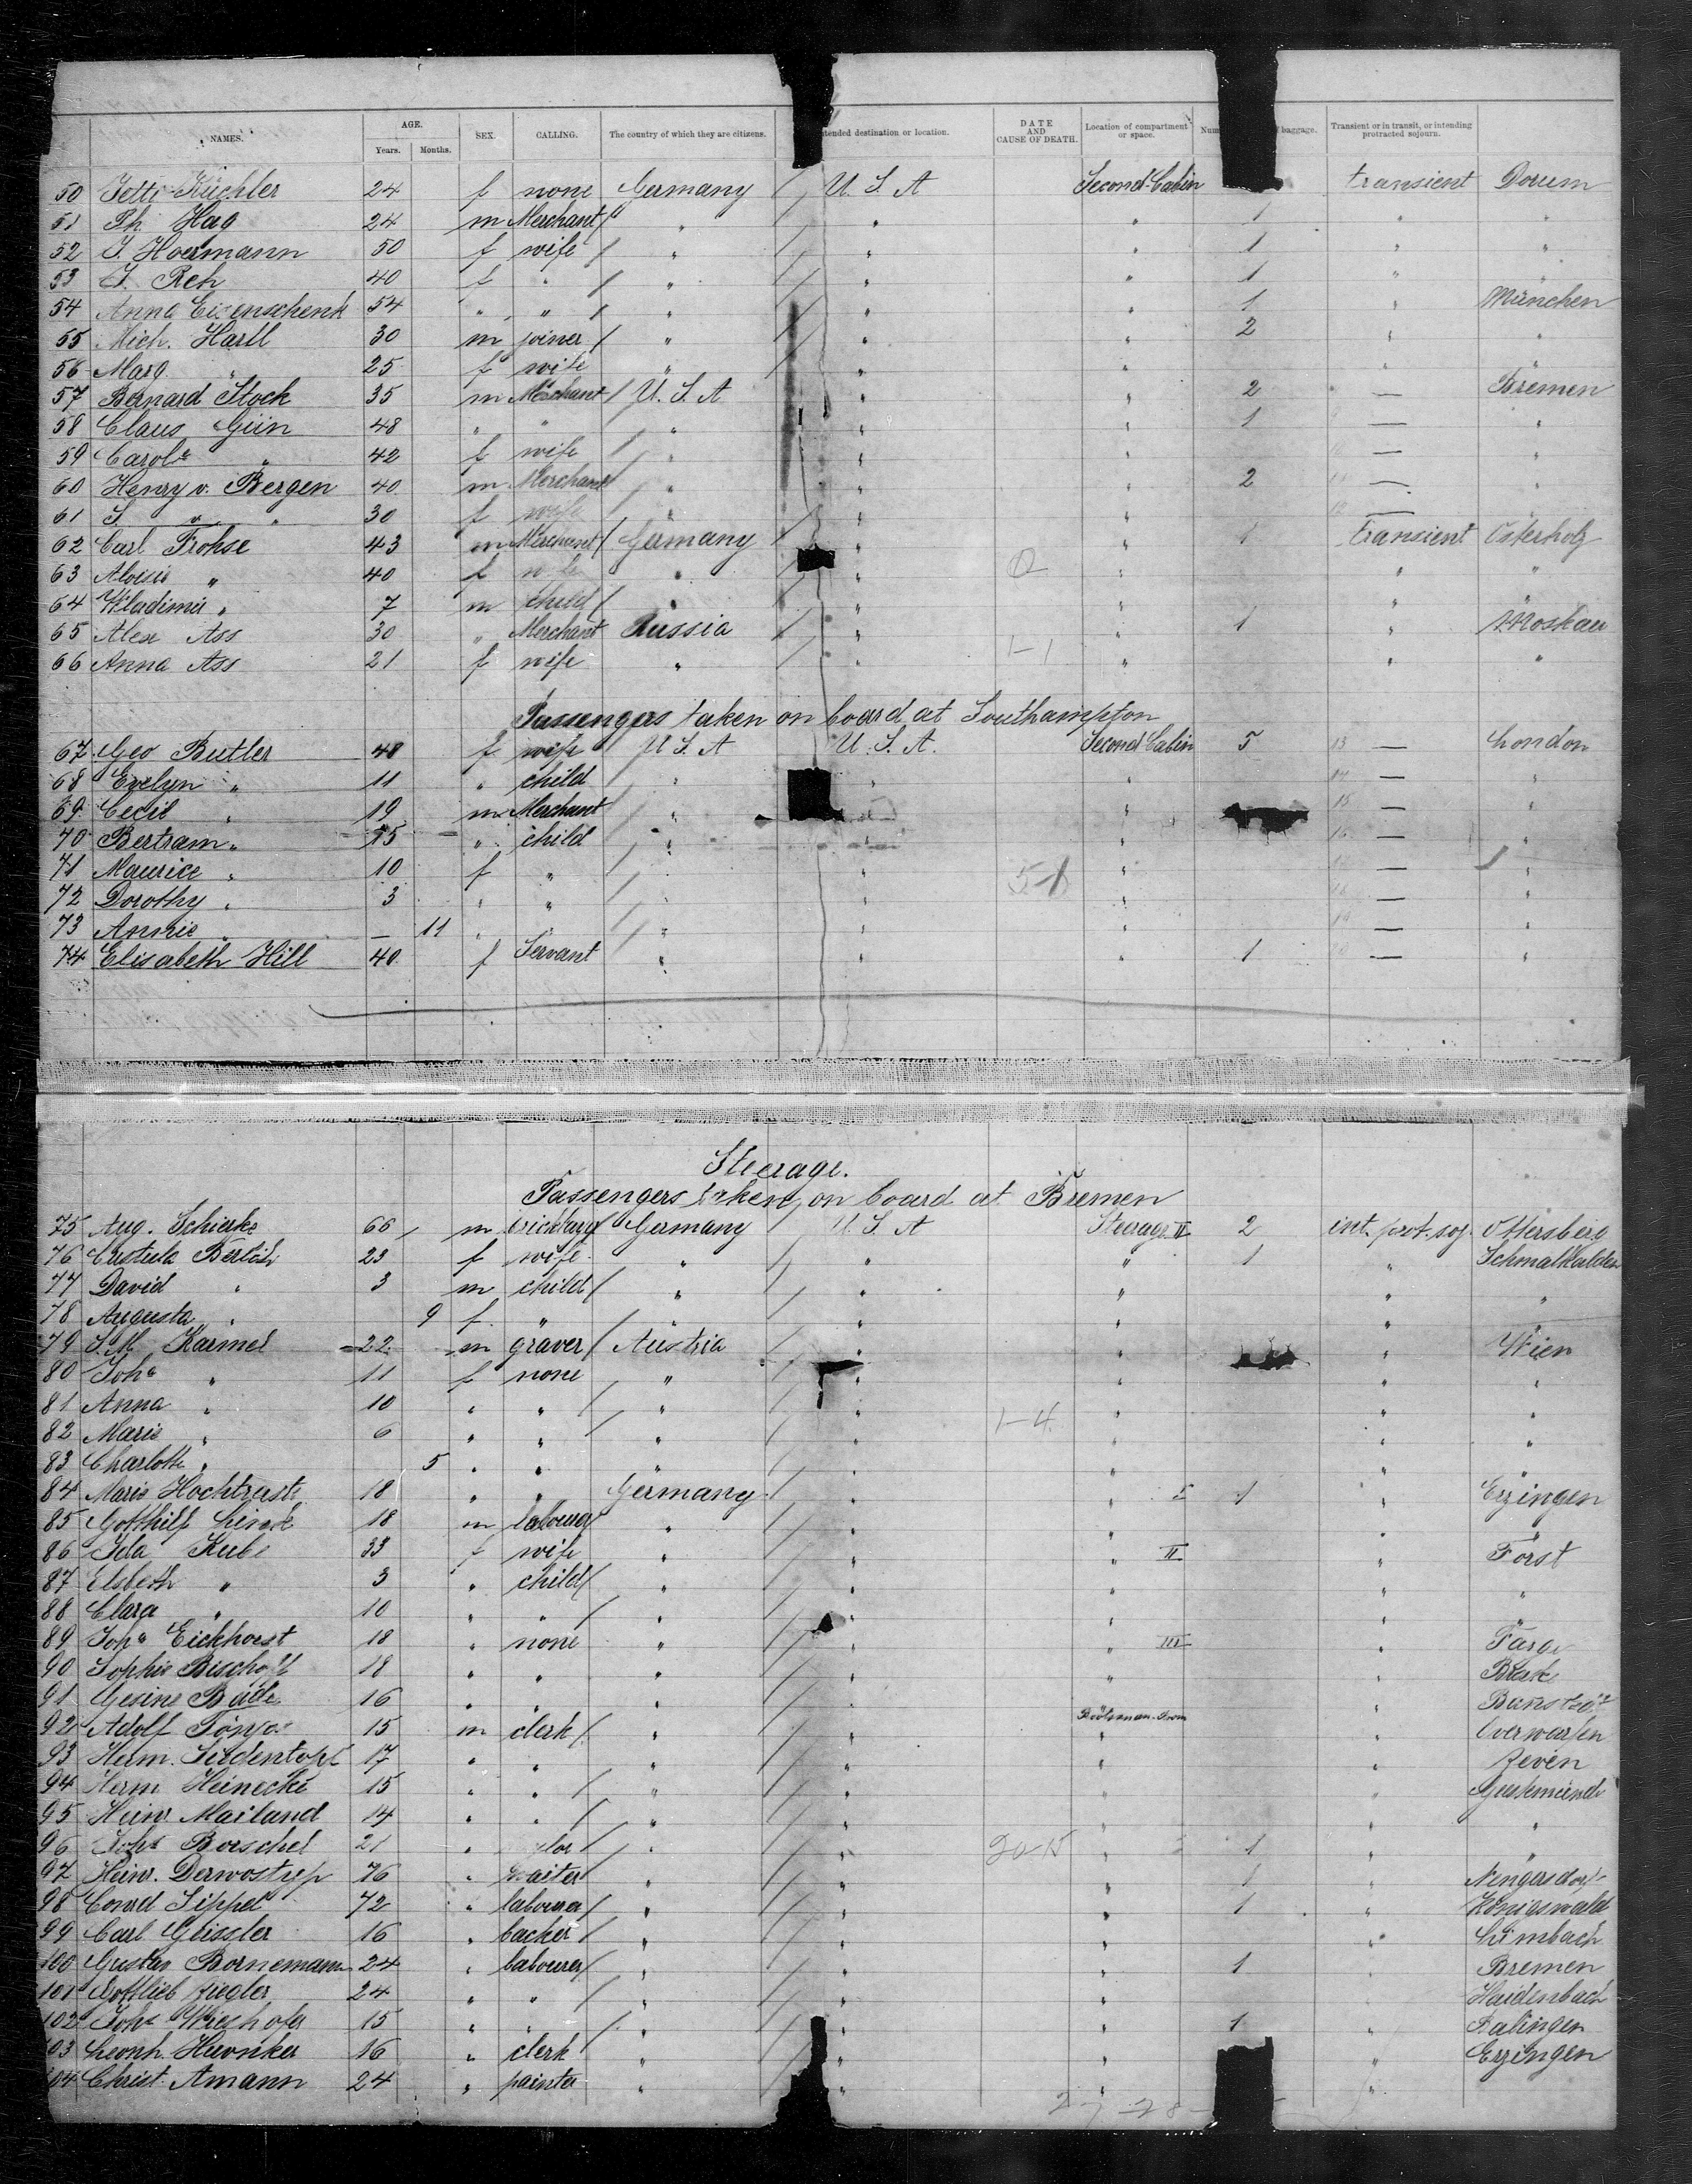 NAMES. AGE. Years. Months. SEX. CALLING. The country of which they are citizens. tended destination or location. DATE AND CAUSE OF DEATH. Location of compartment or space. Num baggage. Transient or in transit, or intending protracted sojourn.
50 Küchler 24 f none Germany / U. S. A Second Cabin transient Dorum
51 Ph. Hag 24 m Merchant / " / " " 1 " "
52 J. Hoermann 50 f wife / " / " " 1 " "
53 J. Reh 40 f " / " / " " 1 "
54 Anna Eisenschenk 54 " " / " / " " 1 " München
55 Mich. Hartl 30 m joiner / " / " " 2 " "
56 Marg. " 25 f wife " / " " " "
57 Bernard Stock 35 m Merchant / U. S. A " " 2 — Bremen
58 Claus Giin 48 " " / " " " 1 — "
59 Carola " 42 f wife / " " " — "
60 Henry v. Bergen 40 m Merchant / " " " 2 — "
61 S. v. " 30 f wife / " " " — "
62 Carl Frohse 43 m Merchant / Germany / " " 1 transient Osterholz
63 Aloisie " 40 f wife " / " 0 " " "
64 Wladimir " 7 m child / " / " " " "
65 Alex Ass 30 " Merchant Russia / " " 1 " Moskau
66 Anna Ass 21 f wife " / " 1-1 " " "
Passengers taken on board at Southampton
67 Geo Butler 48 f wife / U S A U. S. A. Second Cabin 5 13 — London
68 Evelyn " 11 " child / " " " 14 — "
69 Cecil " 19 m Merchant / " " 15 — "
70 Bertram " 15 " child / " " " 16 — "
71 Maurice " 10 f " / " " " — "
72 Dorothy " 3 " " / " 5-1 " — "
73 Annie " — 11 " " / " " " 19 — "
74 Elisabeth Hill 40 f Servant / " " " 1 20 — "
Steerage.
Passengers taken on board at Bremen
75 Aug. Schierke 66 m Germany / U. S A Steerage II 2 int. prot. soj. Ottersberg
76 23 f wife " / " " 1 " Schmalkalden
77 David " 3 m child / " / " " " "
78 Augusta " 9 f " / " / " " " "
79 J. M. Karmel 22 m graver / Austria / " " " Wien
80 Joha " 11 f none " / " " " "
81 Anna " 10 " " / " / " " " "
82 Marie " 6 " " / " / " 1-4 " " "
83 Charlotte " 5 " " " / " " " "
84 Marie 18 " " Germany / " " I 1 " Erzingen
85 Gotthilf 18 m labourer " / " " " "
86 Ida Kube 33 f wife " / " " II " Forst
87 Elsbeth " 3 " child / " / " " " "
88 Clara " 10 " " / " / " " " "
89 Joha Eickhorst 18 " none " / " " III " Farge
90 Sophie Bischoff 18 " " " / " " "
91 Gesine Bade 16 " " " / " "
92 Adolf 15 m clerk / " / " "
93 Herm. Siedentopf 17 " " " / " " " Zeven
94 Herm Heinecke 15 " " / " / " " " Geestemünde
95 Heinr Mailand 14 " " / " / " " " "
96 Johs Borschel 21 " / " / " 20-15 " 1 " "
97 Heinr. 16 " waiter / " / " " 1 "
98 Conrad Sippel 72 " labourer / " / " " 1 " Königswald
99 Carl Geissler 16 " backer / " / " " " Limbach
100 Gustav Bornemann 24 " labourer / " / " " 1 " Bremen
101 Gottlieb Ziegler 24 " " / " / " " " Haidenbach
102 Johs Wieshofer 15 " " / " / " " 1 " Balingen
103 Leonh. 16 " clerk " / " " " Erzingen
104 Christ. Amann 24 " painter " / " " "